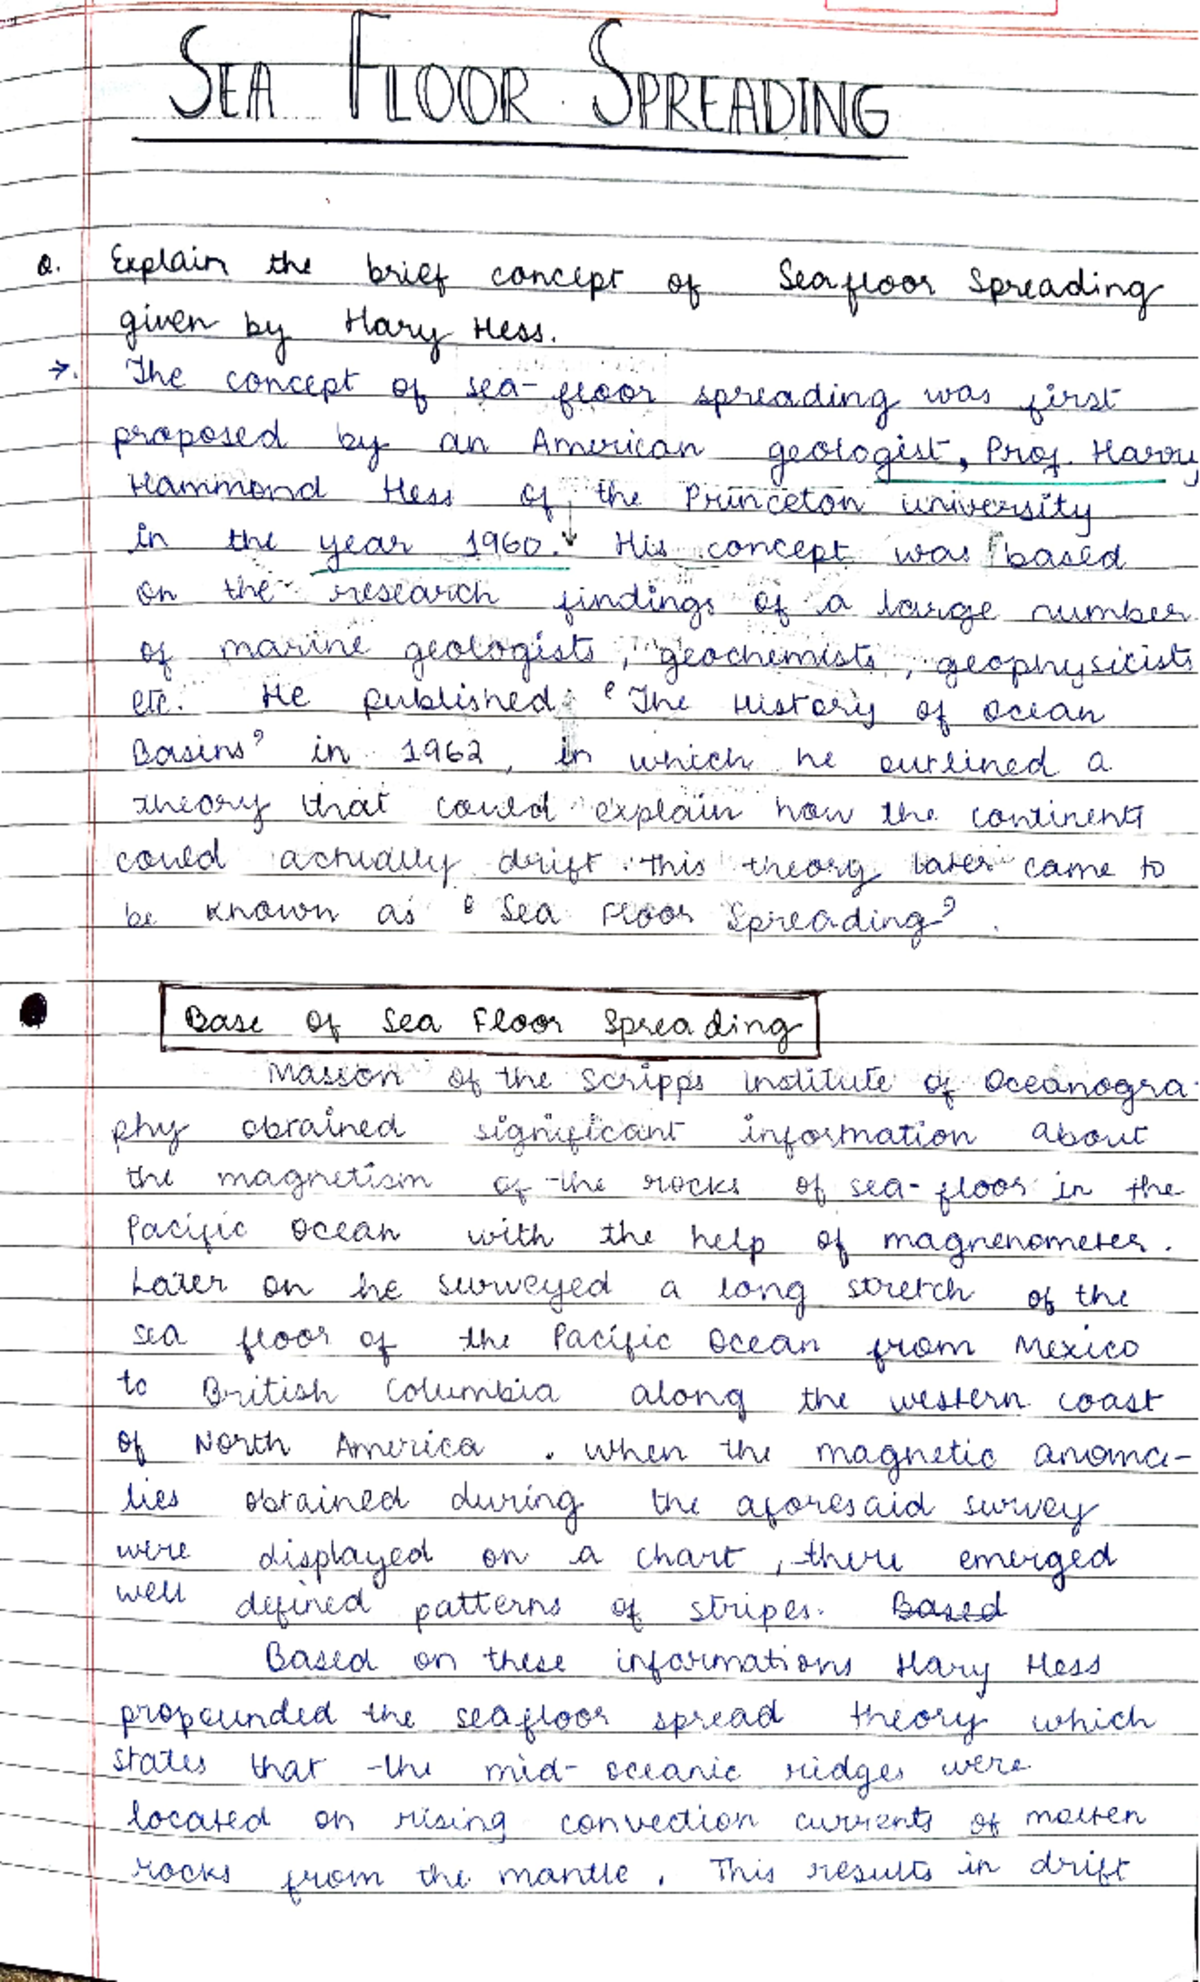 SEA FLOOR SPREADING
Q. Explain the brief concept of Seafloor Spreading
given by Hary Hess.
→. The concept of sea-floor spreading was first
proposed by an American geologist, Prof. Harry
Hammond Hess of the Princeton university
in the year 1960. ↓ His concept was based
on the research findings of a large number
of marine geologists, geochemists, geophysicists
etc. He published 'The History of Ocean
Basins' in 1962, in which he outlined a
theory that could explain how the continents
could actually drift. This theory later came to
be known as 'Sea Floor Spreading'.
Base Of Sea Floor Spreading
Masson of the Scripps institute of Oceanogra-
phy obtained significant information about
the magnetism of the rocks of sea-floor in the
Pacific Ocean with the help of magnenometer.
Later on he surveyed a long stretch of the
sea floor of the Pacific Ocean from Mexico
to British Columbia along the western coast
of North America. When the magnetic anoma-
lies obtained during the aforesaid survey
were displayed on a chart, there emerged
well defined patterns of stripes. Based
Based on these informations Hary Hess
propounded the seafloor spread theory which
states that the mid-oceanic ridges were
located on rising convection currents of molten
rocks from the mantle. This results in drift